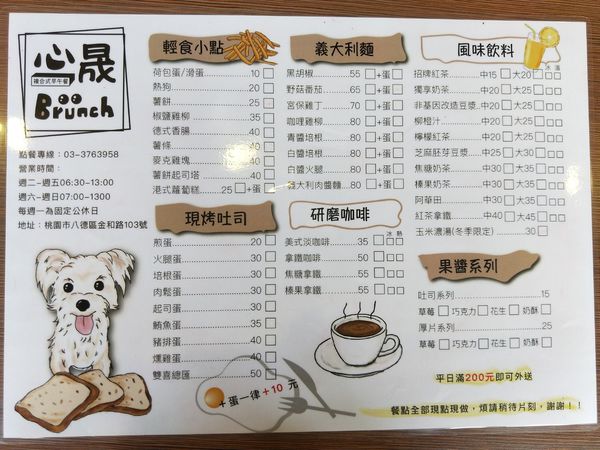 心晟
複合式早午餐
Brunch
點餐專線：03-3763958
營業時間：
週二-週五06:30-13:00
週六-週日07:00-1300
每週一為固定公休日
地址：桃園市八德區金和路103號
輕食小點
荷包蛋/滑蛋 10
熱狗 20
薯餅 25
椒鹽雞柳 35
德式香腸 40
薯條 40
麥克雞塊 40
薯餅起司塔 40
港式蘿蔔糕 25 +蛋
現烤吐司
煎蛋 20
火腿蛋 30
培根蛋 30
肉鬆蛋 30
起司蛋 30
鮪魚蛋 35
豬排蛋 40
燻雞蛋 40
雙喜總匯 50
＋蛋一律+10 元
義大利麵
黑胡椒 55 +蛋
野菇番茄 65 +蛋
宮保雞丁 70 +蛋
咖哩雞柳 80 +蛋
青醬培根 80 +蛋
白醬培根 80 +蛋
白醬火腿 80 +蛋
義大利肉醬麵 80 +蛋
研磨咖啡
冰 熱
美式淡咖啡 35
拿鐵咖啡 50
焦糖拿鐵 55
榛果拿鐵 55
風味飲料
冰 溫
招牌紅茶 中15 大20
獨享奶茶 中20 大25
非基因改造豆漿 中20 大25
柳橙汁 中20 大25
檸檬紅茶 中20 大25
芝麻胚芽豆漿 中25 大30
焦糖奶茶 中25 大30
榛果奶茶 中25 大30
阿華田 中30 大35
紅茶拿鐵 中40 大45
玉米濃湯(冬季限定) 30
果醬系列
吐司系列 15
草莓 巧克力 花生 奶酥
厚片系列 25
草莓 巧克力 花生 奶酥
平日滿200元即可外送
餐點全部現點現做，煩請稍待片刻，謝謝！！